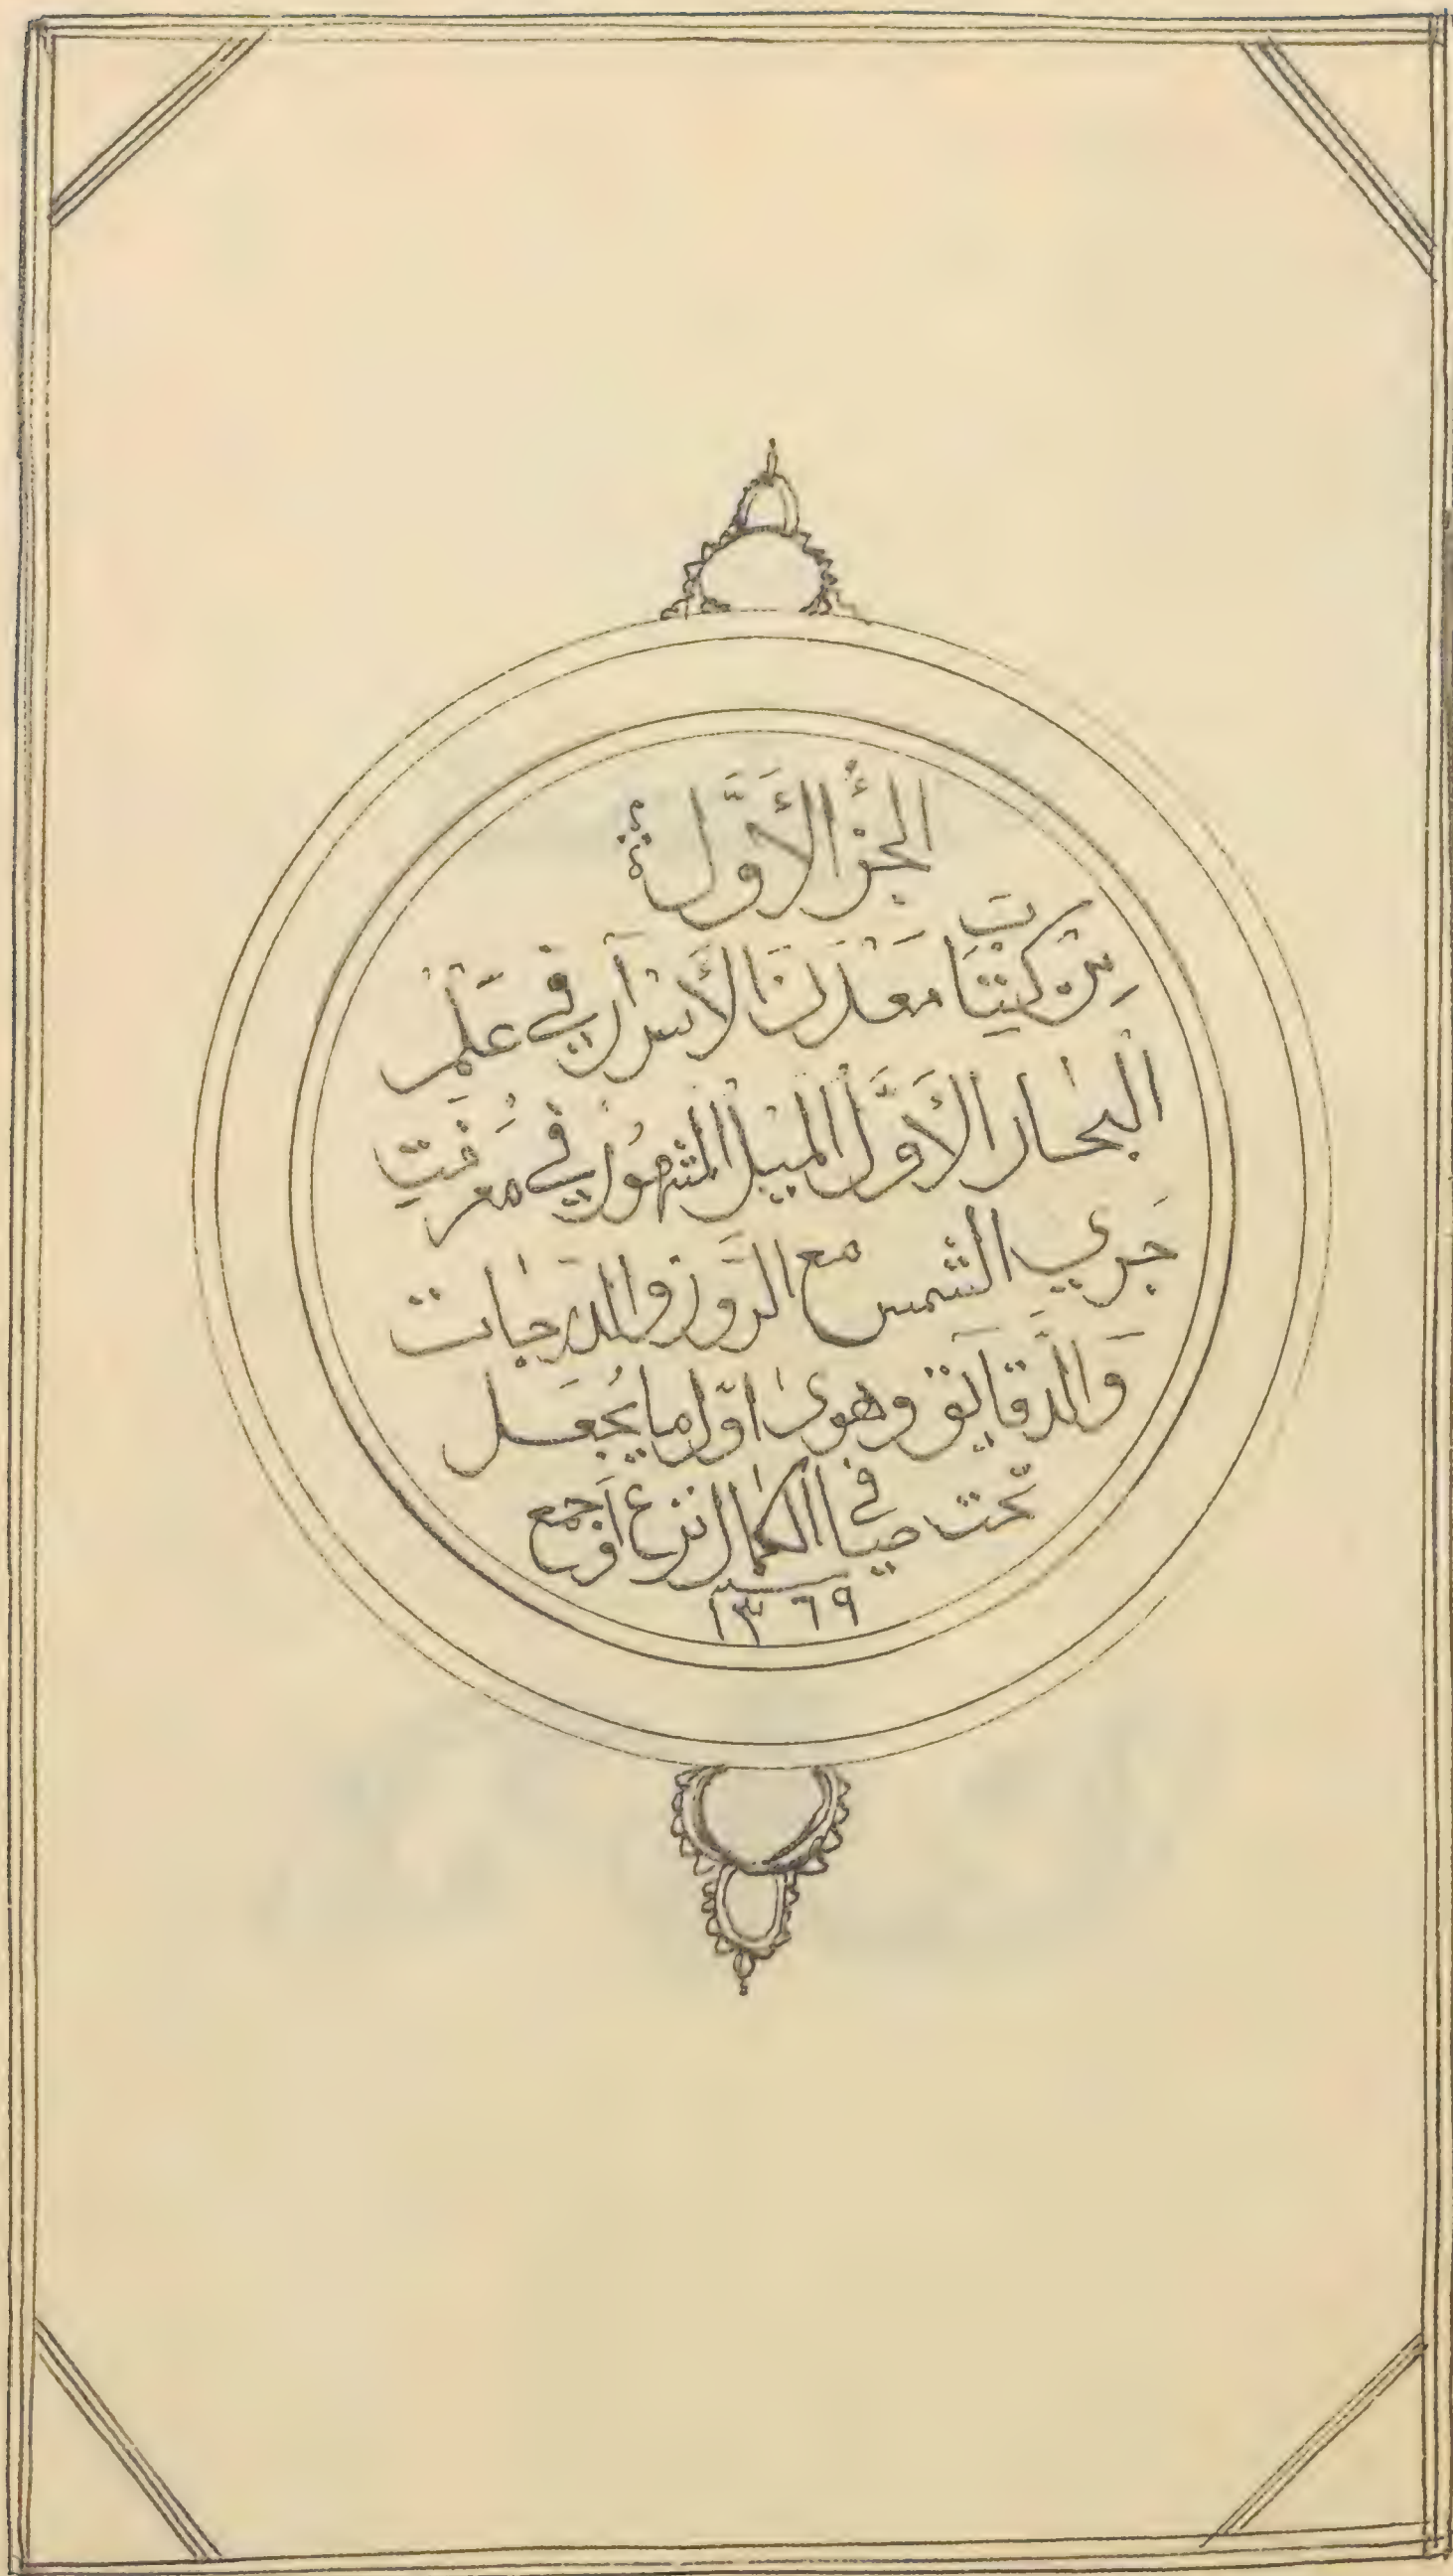 الجزُأ الأَوَّل
مِنْ كِيتَابَ مَعْدَنَ الأَسْرَار في عَلْمِ
الْبحار الأَوَّل الميل المشهُور في معرفتِ
جَرىِ الشمس مع الرَّوز والدرجات
وَالدَّقايق وهوى اوّل ما يُجعَل
تحت صيا في الكمال نزع اَو جمع
سنة ١٣٦٩